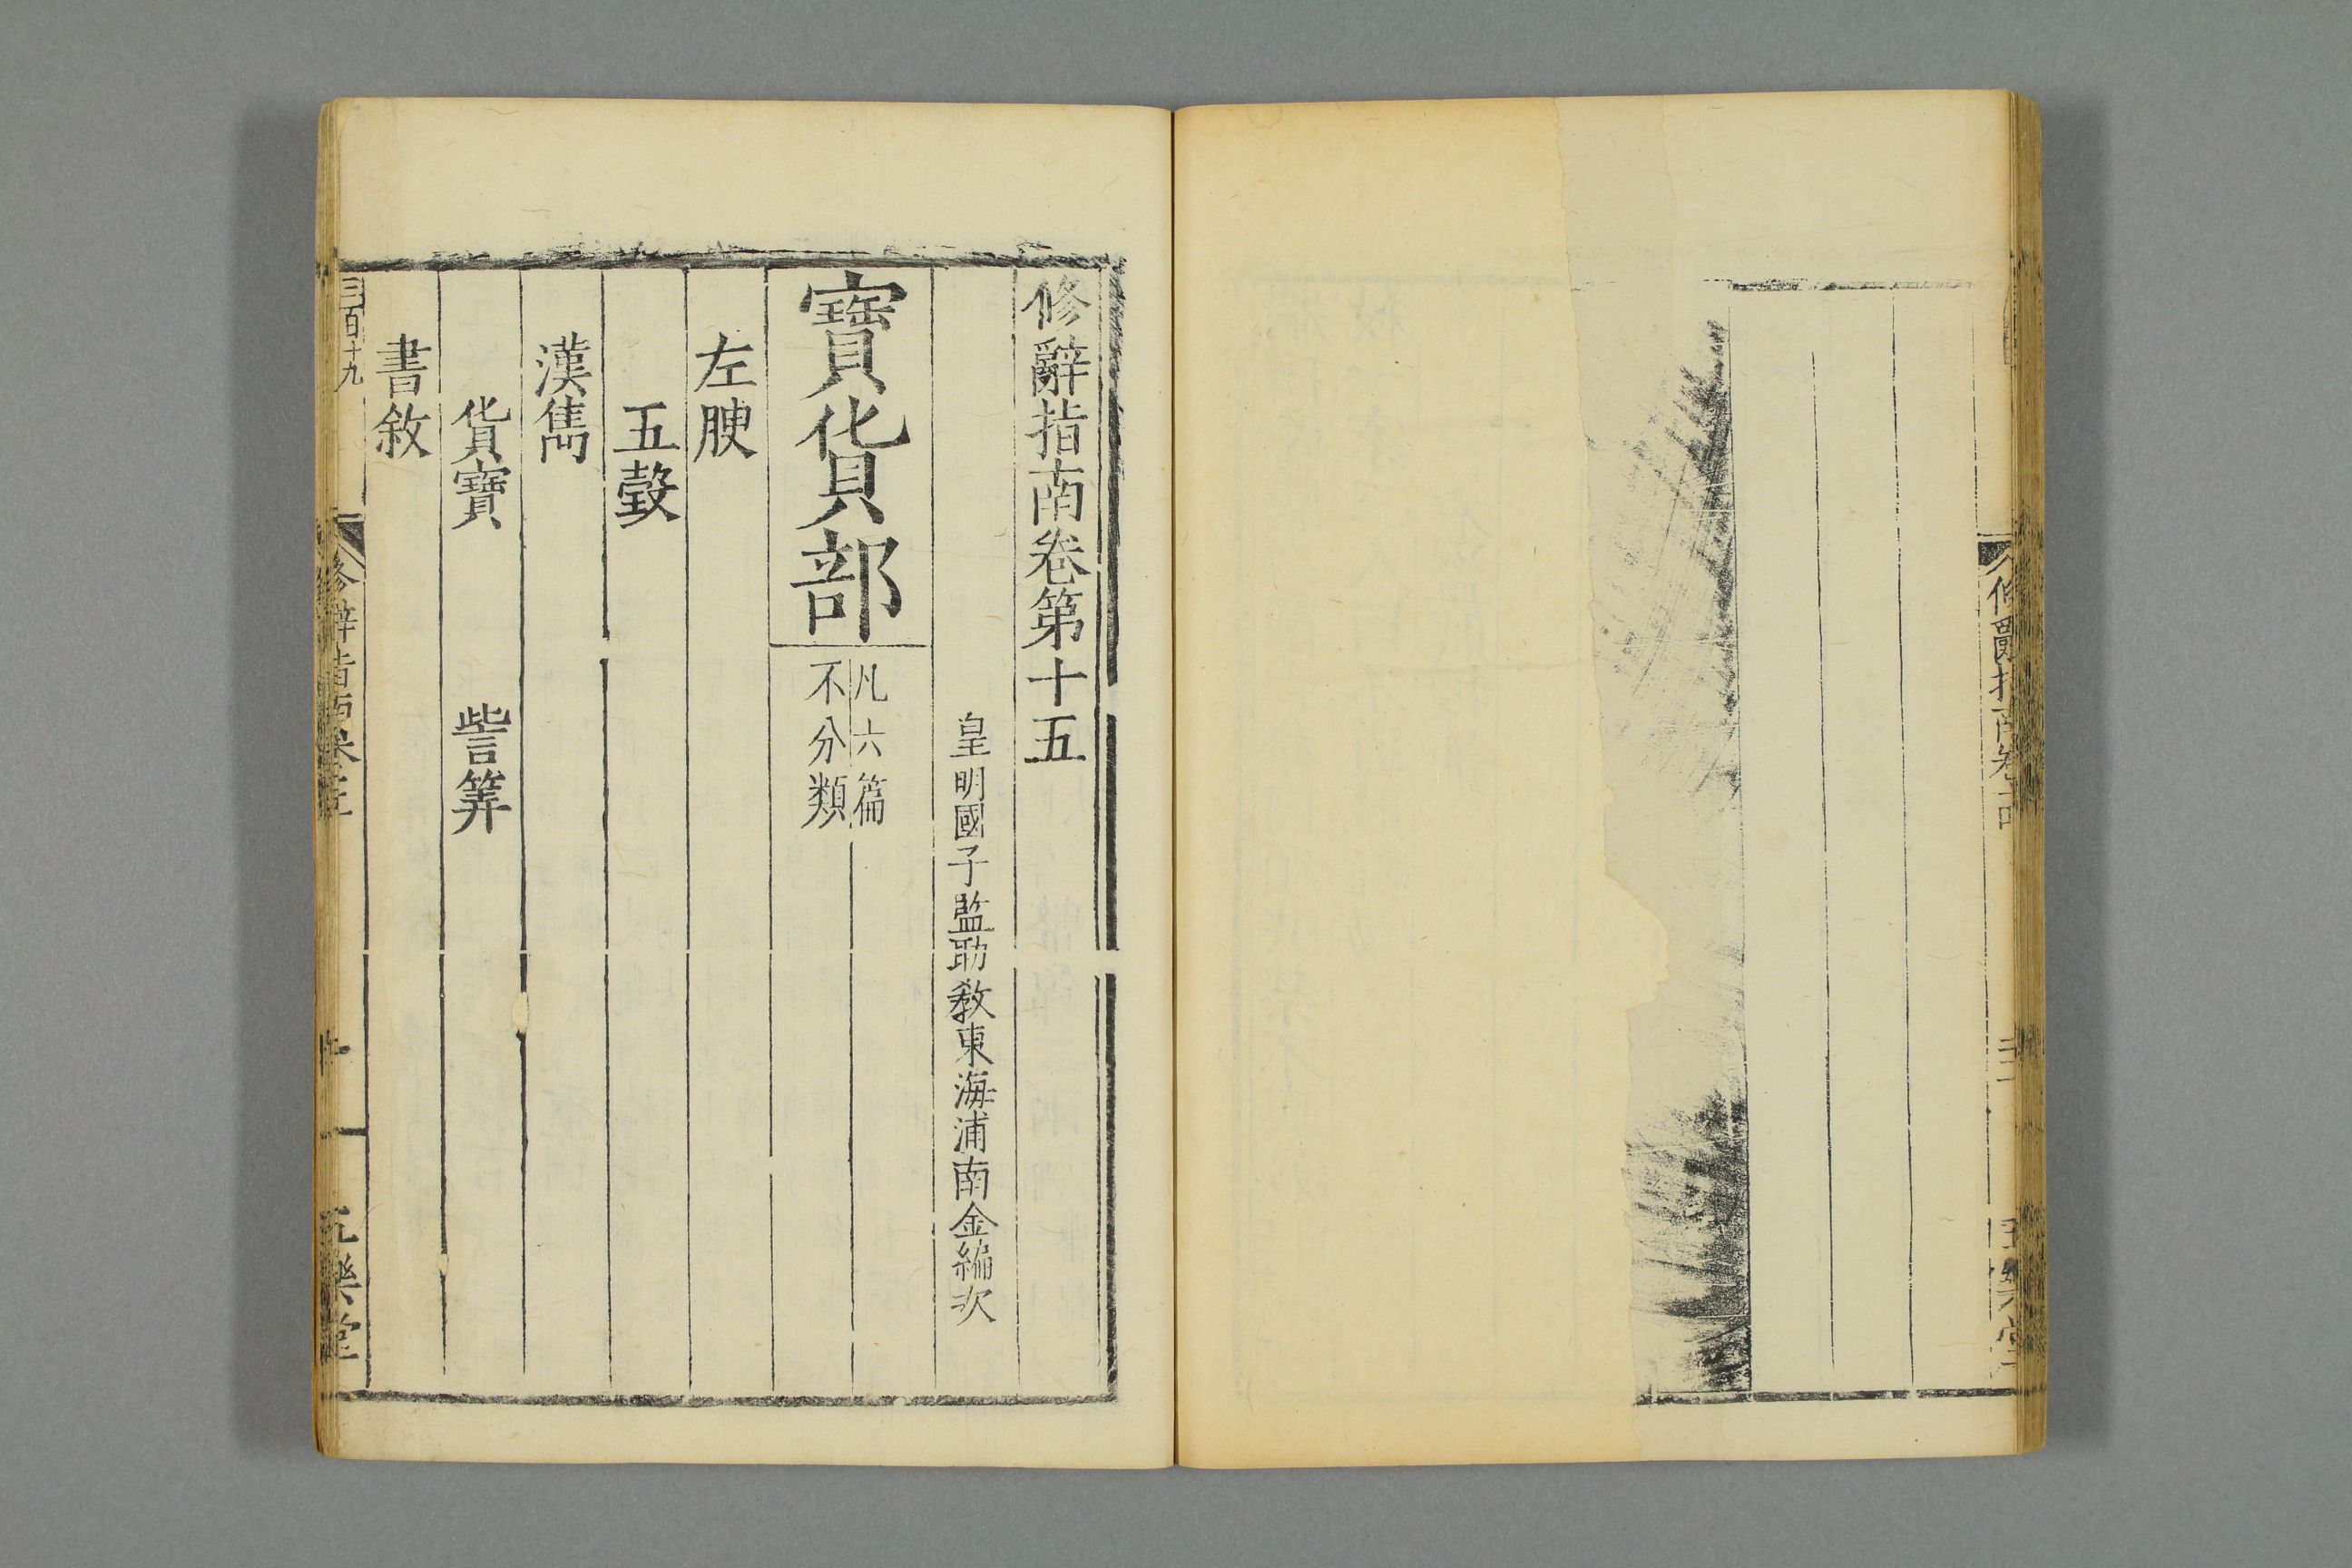 修辭指南卷第十五
皇明國子監助教東海浦南金編次
寶貨部
凡六篇
不分類
左腴
五瑴
漢雋
貨寶
訾筭
書敘
三百十九
修辭指南卷十五
五樂堂